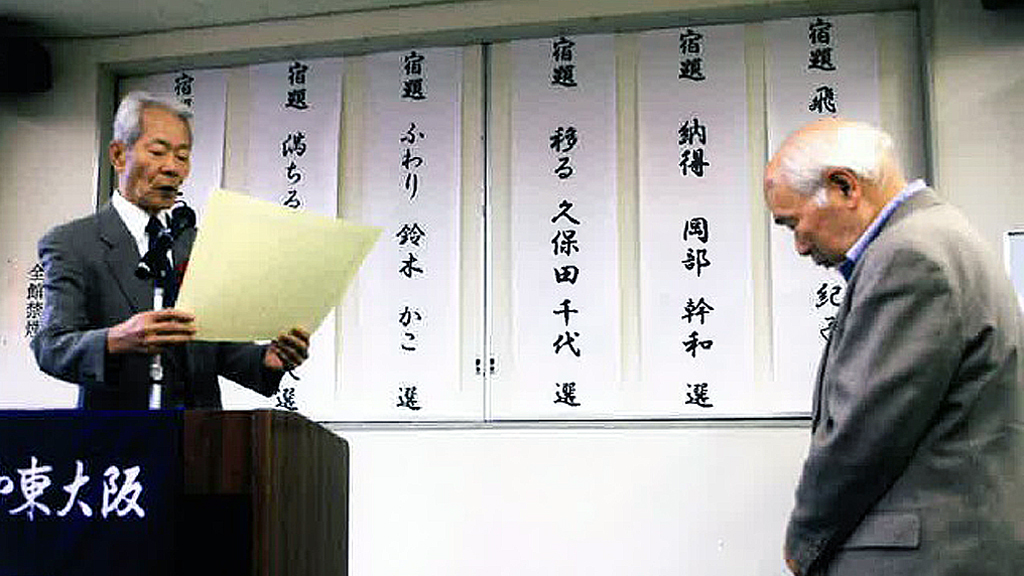 宿題 飛
紀
宿題 納得 岡部 幹和 選
宿題 移る 久保田 千代 選
宿題 ふわり 鈴木 かこ 選
宿題 満ちる
選
宿題
全館禁煙
東大阪